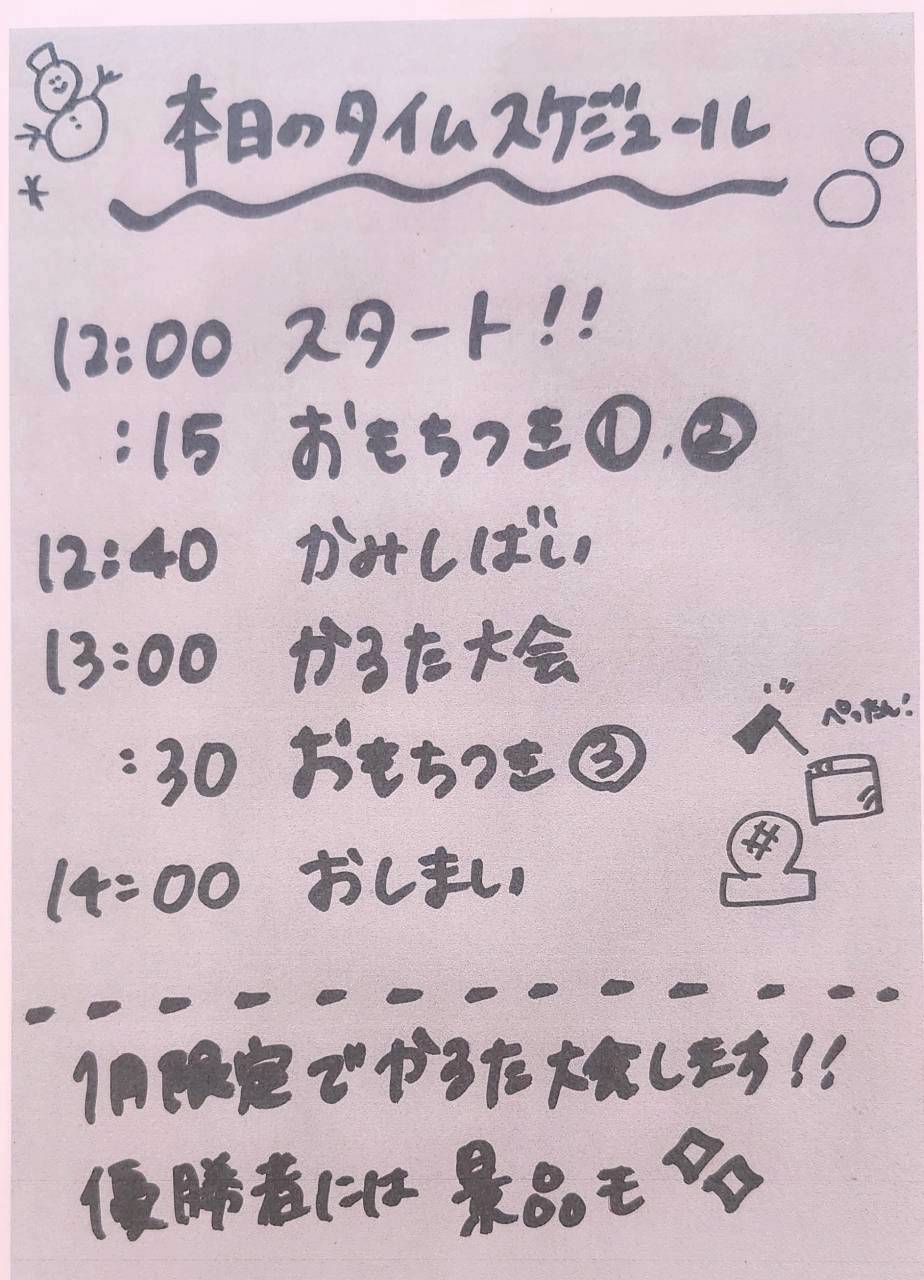 本日のタイムスケジュール
12:00 スタート!!
:15 おもちつき①.②
12:40 かみしばい
13:00 かるた大会
:30 おもちつき③
ぺったん!
14:00 おしまい
1月限定でかるた大会します!!
優勝者には景品モ